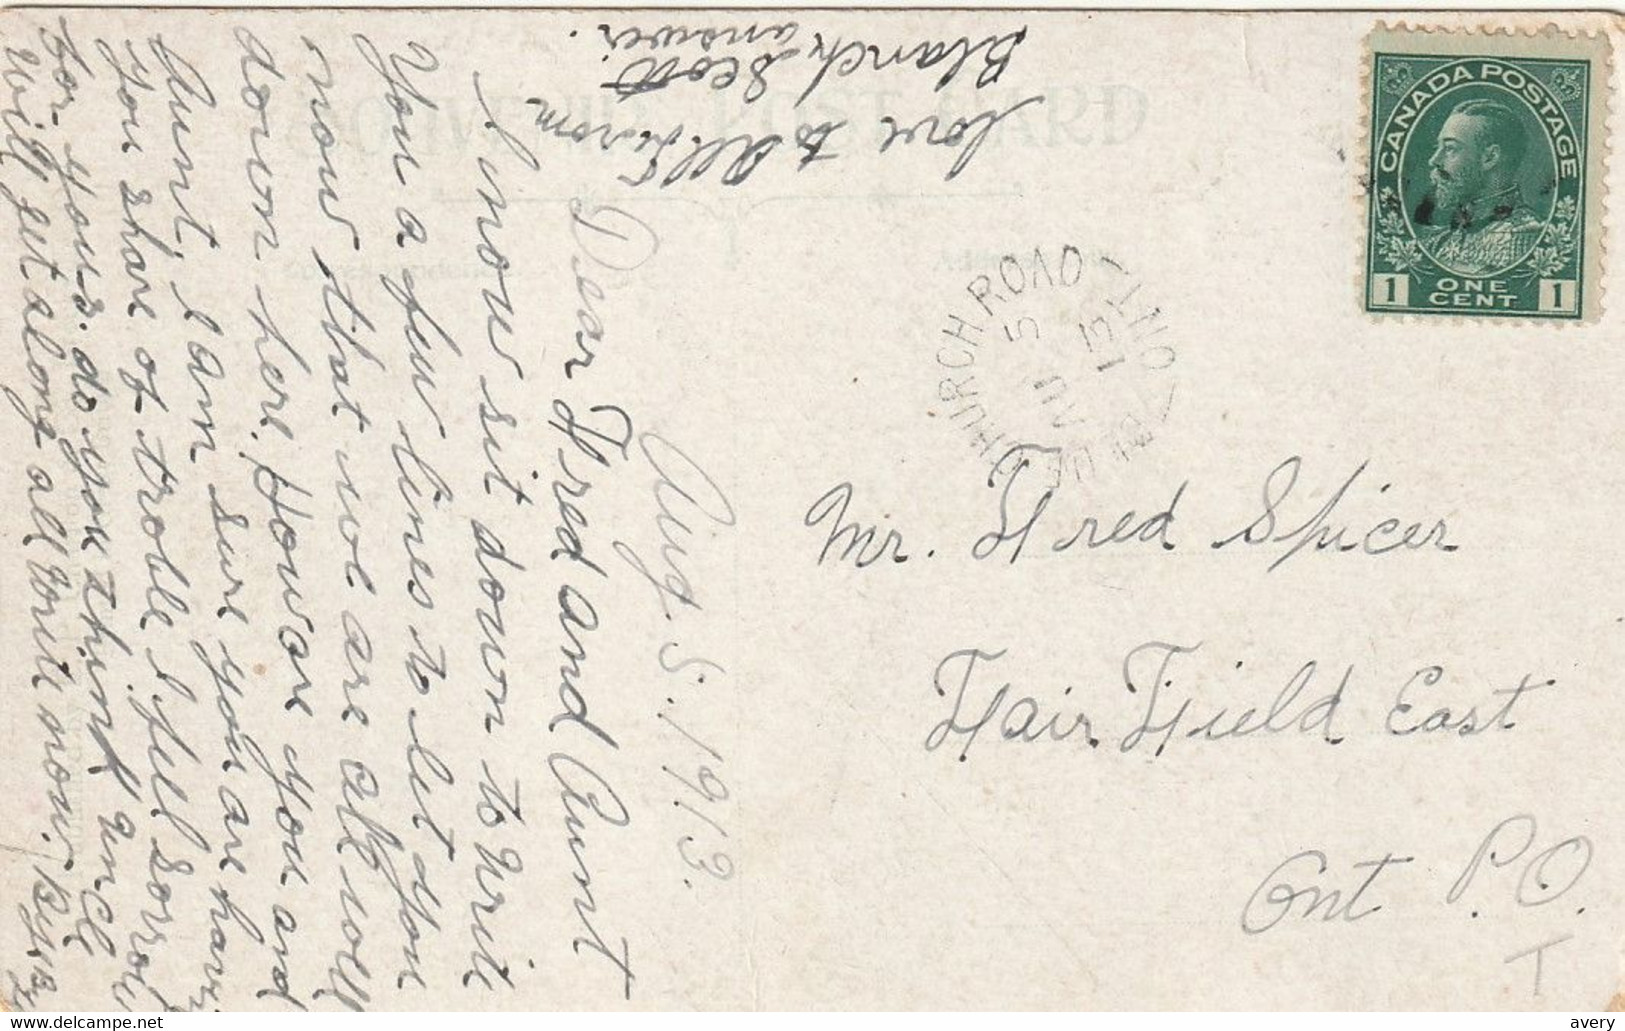 Aug. 5. 1913.
Dear Fred and Aunt
I now sit down to write
You a few lines to let you
now that we are all well
down here. How are you and
Aunt, I am sure you are hav
you share of troble I feel sorrow
for you. do you think uncle
will get along all write now. By By
Love to All. From
Blanch Scott.
answer.
SOUVENIR POST CARD
Correspondence
Address
CHURCH ROAD
ONT
AU 5
13
CANADA POSTAGE
1 ONE CENT 1
Mr. Fred Spicer
Fair Field East
Ont P.O.
T
avery